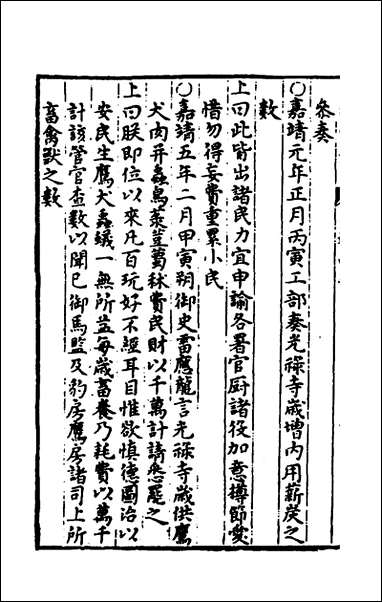 叅奏
○嘉靖元年正月丙寅工部奏光祿寺歲增內用薪炭之
數
上曰此皆出諸民力宜申諭各署官厨諸役加意撙節愛
惜勿得妄費重累小民
○嘉靖五年二月甲寅朔御史雷應龍言光祿寺歲供鷹
犬肉并蟲鳥菉荳萬秫費民財以千萬計請悉罷之
上曰朕即位以來凡百玩好不經耳目惟欲慎德圖治以
安民生鷹犬蟲蟻一無所益每歲畜養乃耗費以萬千
計該管官查數以聞已御馬監及豹房鷹房諸司上所
畜禽獸之數